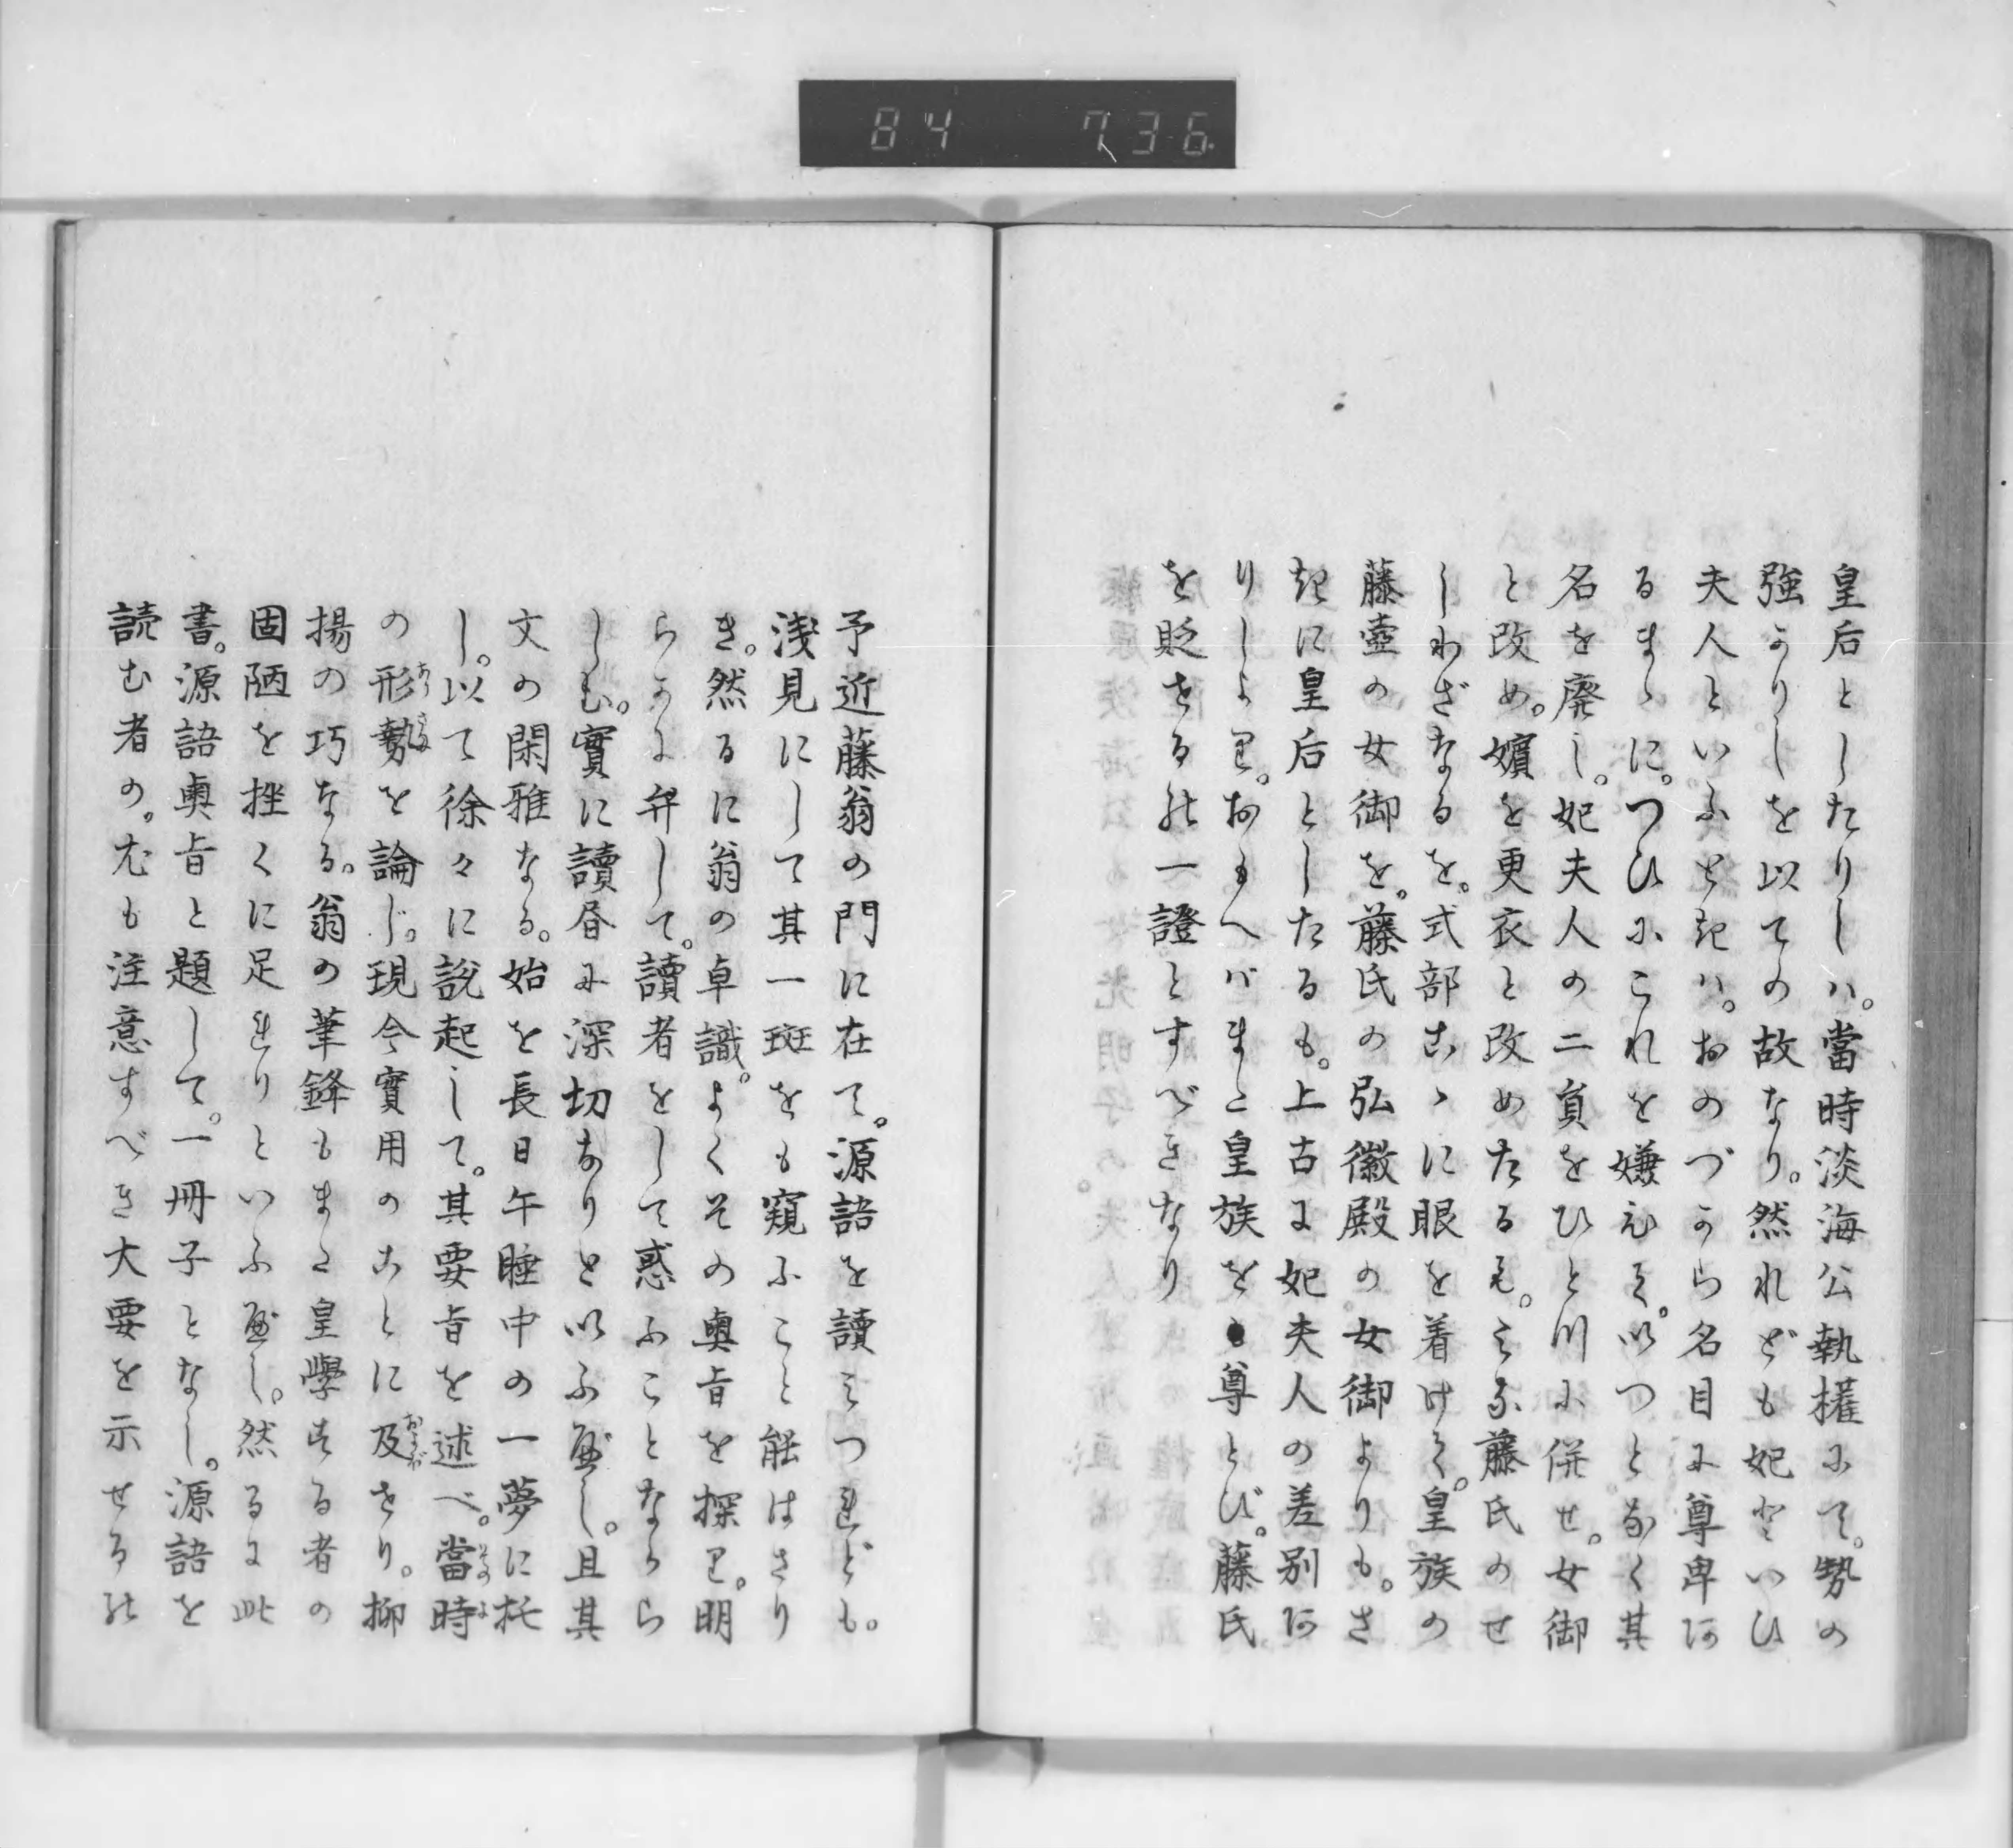 84 736
皇后としたりしハ。當時淡海公執權にて。勢の
強かりしを以ての故なり。然れども妃といひ
夫人といふときハ。おのづから名目に尊卑あ
るまゝに。つひにこれを嫌ひて。いつとなく其
名を廃し。妃夫人の二員をひと川に併せ。女御
と改め。嬪を更衣と改めたるも。みな藤氏のせ
しわざなるを。式部こゝに眼を着けて。皇族の
藤壺の女御を。藤氏の弘徽殿の女御よりも。さ
きに皇后としたるも。上古に妃夫人の差別あ
りしより。おもへバまた皇族を尊とび。藤氏
を貶せるの一證とすべきなり
予近藤翁の門に在て。源語を讀みつれども。
淺見にして其一斑をも窺ふこと能はさり
き。然るに翁の卓識。よくその奥旨を探り。明
らかに弁して。讀者をして惑ふことなから
しむ。實に讀昏に深切なりと以ふ可し。且其
文の閑雅なる。始を長日午睡中の一夢に托
し。以て徐々に説起して。其要旨を述べ。當時
の形勢を論じ。現今實用のことに及せり。抑
揚の巧なる。翁の筆鋒もまた皇學する者の
固陋を挫くに足れりといふ可し。然るに此
書。源語奥旨と題して。一冊子となし。源語を
読む者の。尤も注意すべき大要を示せるの